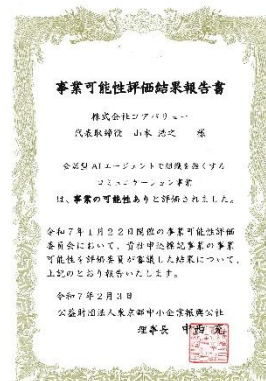 事業可能性評価結果報告書
株式会社コアバリュー
代表取締役 山本 浩之 様
会話型AIエージェントで組織を強くする
コミュニケーション事業
は、事業の可能性ありと評価されました。
令和7年1月22日開催の事業可能性評価
委員会において、貴社申込標記事業の事業
可能性を評価委員が審議した結果について、
上記のとおり報告いたします。
令和7年2月3日
公益財団法人東京都中小企業振興公社
理事長 中西 充